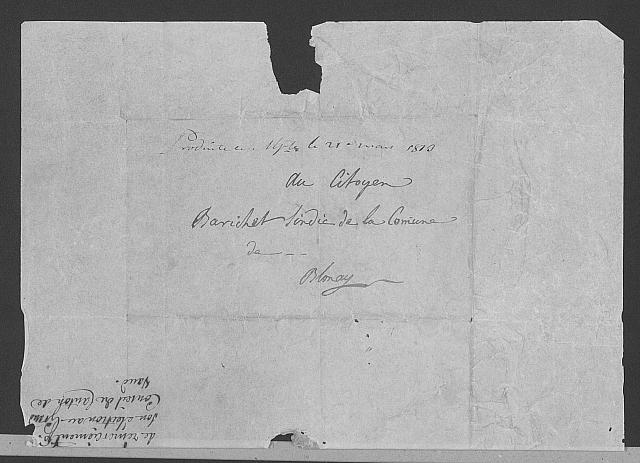 Produite en le 21 mars 1810
au Citoyen
Barichet Sindic de la Comune
de --
Blonay
de remerciement
son election au Grand
Conseil du Canton de
Vaud.